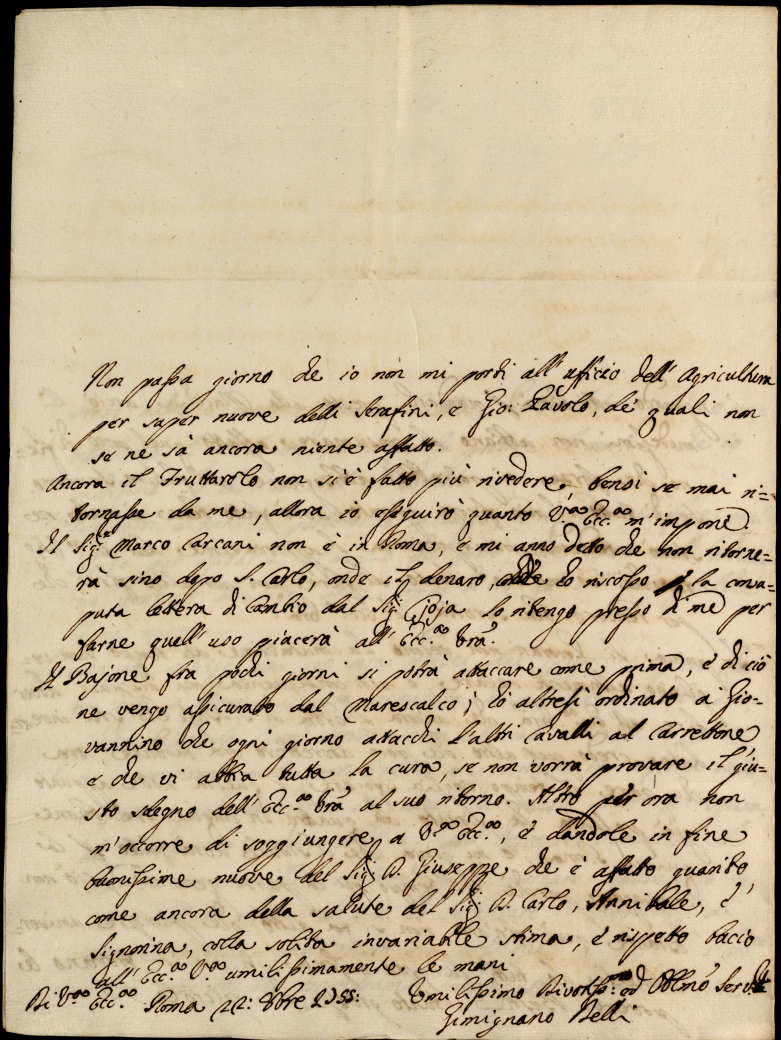 Non passa giorno che io non mi porti all'ufficio dell'Agricultura
per saper nuove delli Serafini, e Gio: Pavolo, de' quali non
se ne sà ancora niente affatto.
Ancora il Fruttarolo non si è fatto più rivedere, bensi se mai ri=
tornasse da me, allora io eseguirò quanto V.ra Ecc.za m'impone.
Il Sig.r Marco Carcani non è in Roma, e mi anno detto che non ritorne=
rà sino dopo S. Carlo, onde il denaro, che ò riscosso p la consa=
puta lettera di Cambio dal Sig.r Gioja lo ritengo presso di me per
farne quell'uso piacerà all'Ecc.za Vra.
Il Bajone fra pochi giorni si potrà attaccare come prima, e di ciò
ne vengo assicurato dal Marescalco; ò altresi ordinato a Gio=
vannino che ogni giorno attacchi l'altri Cavalli al Carrettone
e che vi abbia tutta la cura, se non vorrà provare il giu=
sto sdegno dell'Ecc.za Vra al suo ritorno. Altro per ora non
m'occorre di soggiungere a V.ra Ecc.za, e dandole in fine
buonissime nuove del Sig.r D. Giuseppe che è affatto guarito,
come ancora della salute del Sig.r D. Carlo, Annibale, e
Signorina, colla solita invariabile stima, e rispetto bacio
all'Ecc.za V.ra umilissimamente le mani
Di V.ra Ecc.za Roma 22: 8bre 1755:
Umilissimo Divotiss:mo ed Obblmo Serv.re
Gimignano Belli